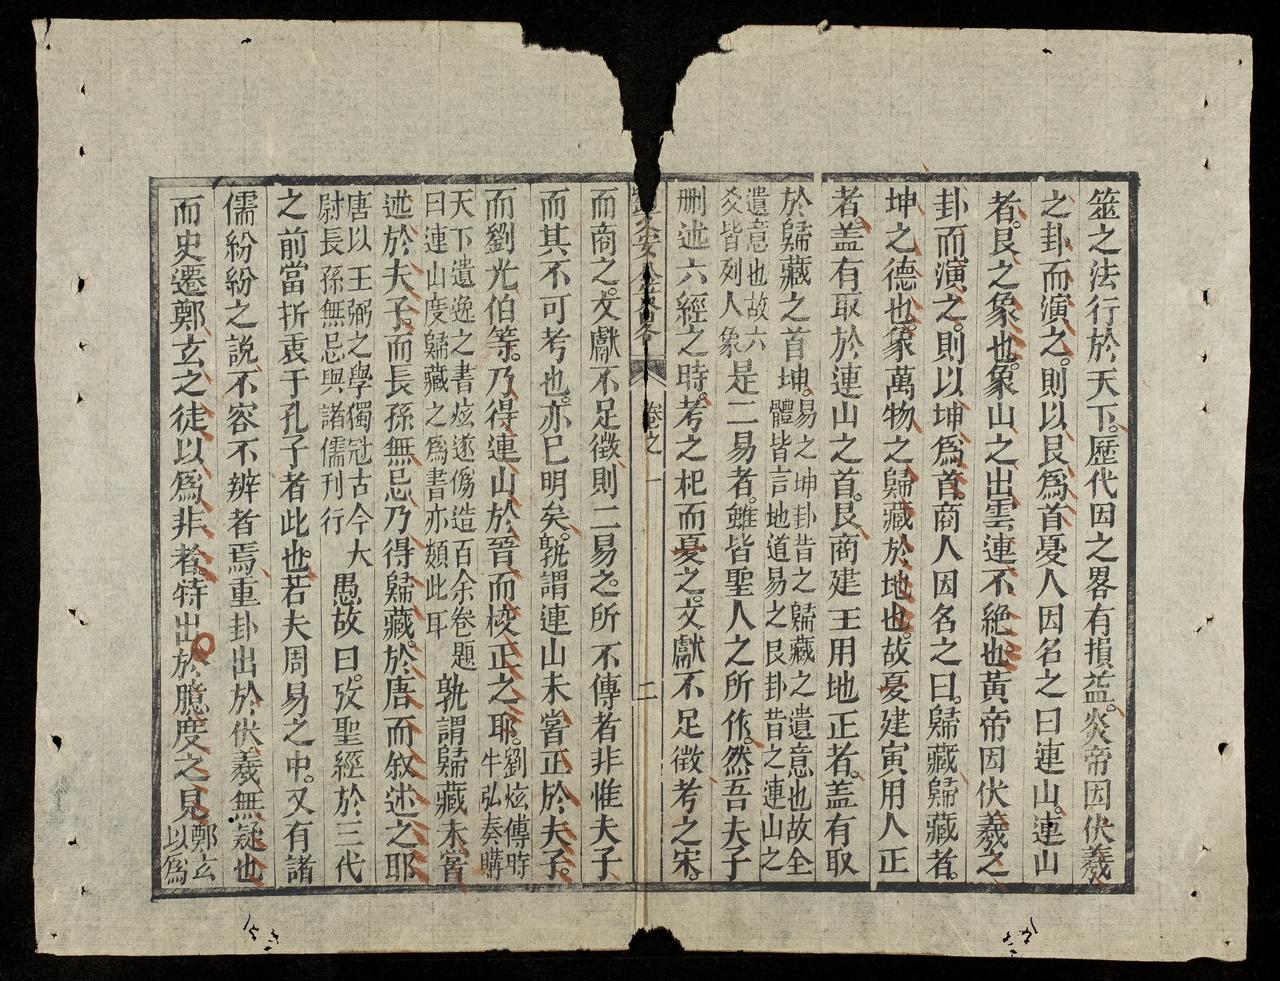 筮之法行於天下。歷代因之畧有損益。炎帝因伏羲
之卦而演之。則以艮爲首夏人因名之曰連山。連山
者。艮之象也。象山之出雲連不絶也黃帝因伏羲之
卦而演之。則以坤爲首。商人因名之曰。歸藏歸藏者。
坤之德也。象萬物之歸藏於地也。故夏建寅用人正
者。蓋有取於連山之首。艮商建丑用地正者。蓋有取
於歸藏之首坤。易之坤卦昔之歸藏之遺意也故全
體皆言地道易之艮卦昔之連山之
遺意也故六
爻皆列人象是二易者。雖皆聖人之所作。然吾夫子
刪述六經之時。考之杞而夏之。文獻不足徵考之宋。
卷之一
二
而商之。文獻不足徵則二易之所不傳者非惟夫子
而其不可考也。亦已明矣。孰謂連山未嘗正於夫子。
而劉光伯等。乃得連山於晉而校正之耶。劉炫傳時
牛弘奏購
天下遺逸之書炫遂僞造百余卷題
曰連山度歸藏之爲書亦類此耳孰謂歸藏未嘗
述於夫子而長孫無忌乃得歸藏。於唐而敘述之耶
唐以王弼之學獨冠古今大
尉長孫無忌與諸儒刊行愚故曰。攷聖經於三代
之前當折衷于孔子者此也。若夫周易之中。又有諸
儒紛紛之說不容不辨者焉重卦出於伏羲無疑也
而史遷鄭玄之徒以爲非者。特出於臆度之見鄭玄
以爲